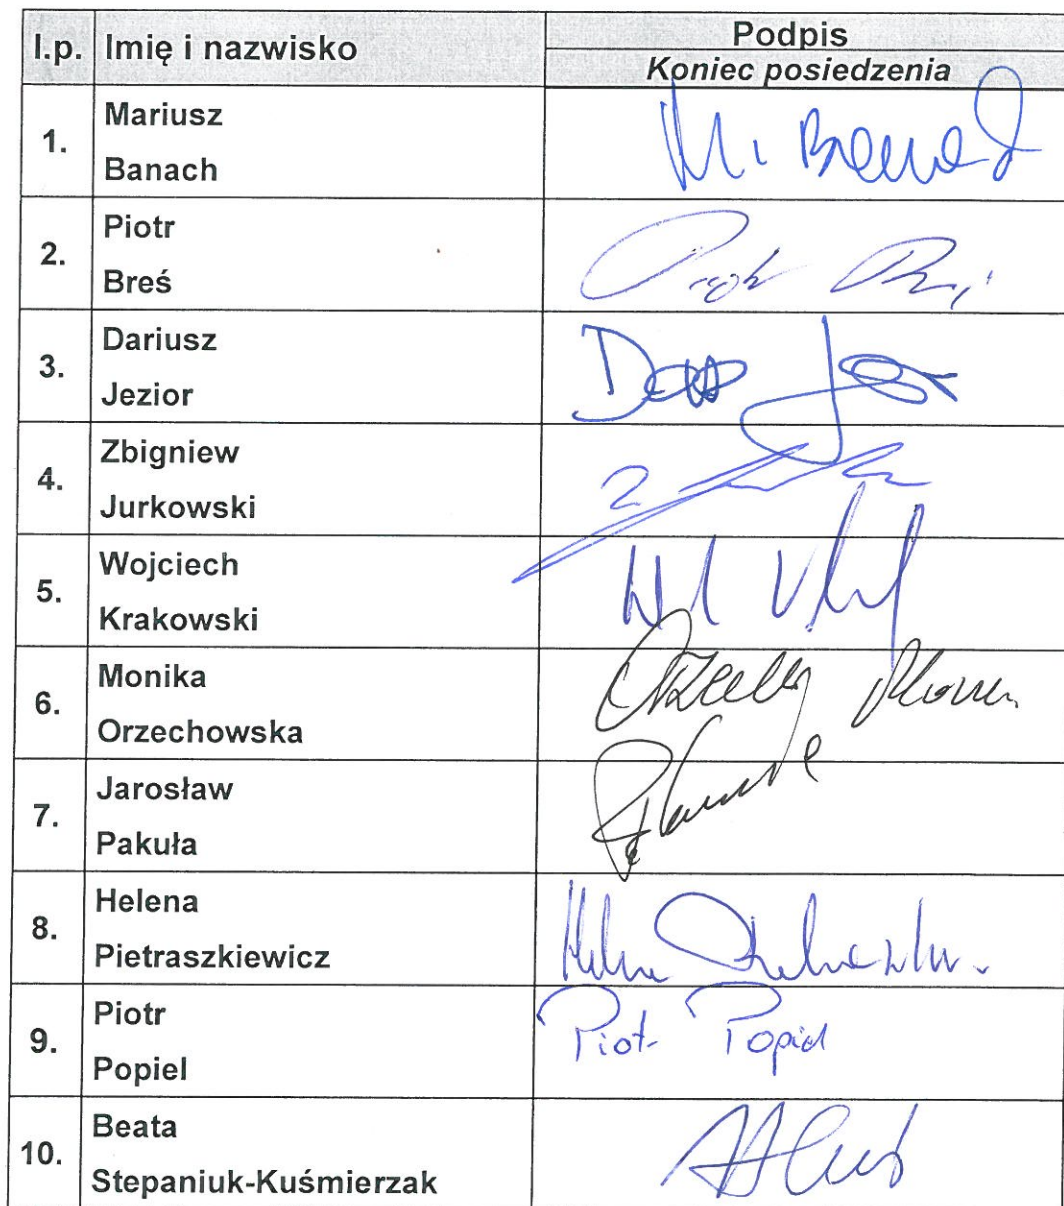 l.p. Imię i nazwisko Podpis
Koniec posiedzenia
1. Mariusz
Banach
M. Banach
2. Piotr
Breś
Piotr
3. Dariusz
Jezior
4. Zbigniew
Jurkowski
5. Wojciech
Krakowski
6. Monika
Orzechowska
7. Jarosław
Pakuła
8. Helena
Pietraszkiewicz
9. Piotr
Popiel
Piotr Popiel
10. Beata
Stepaniuk-Kuśmierzak